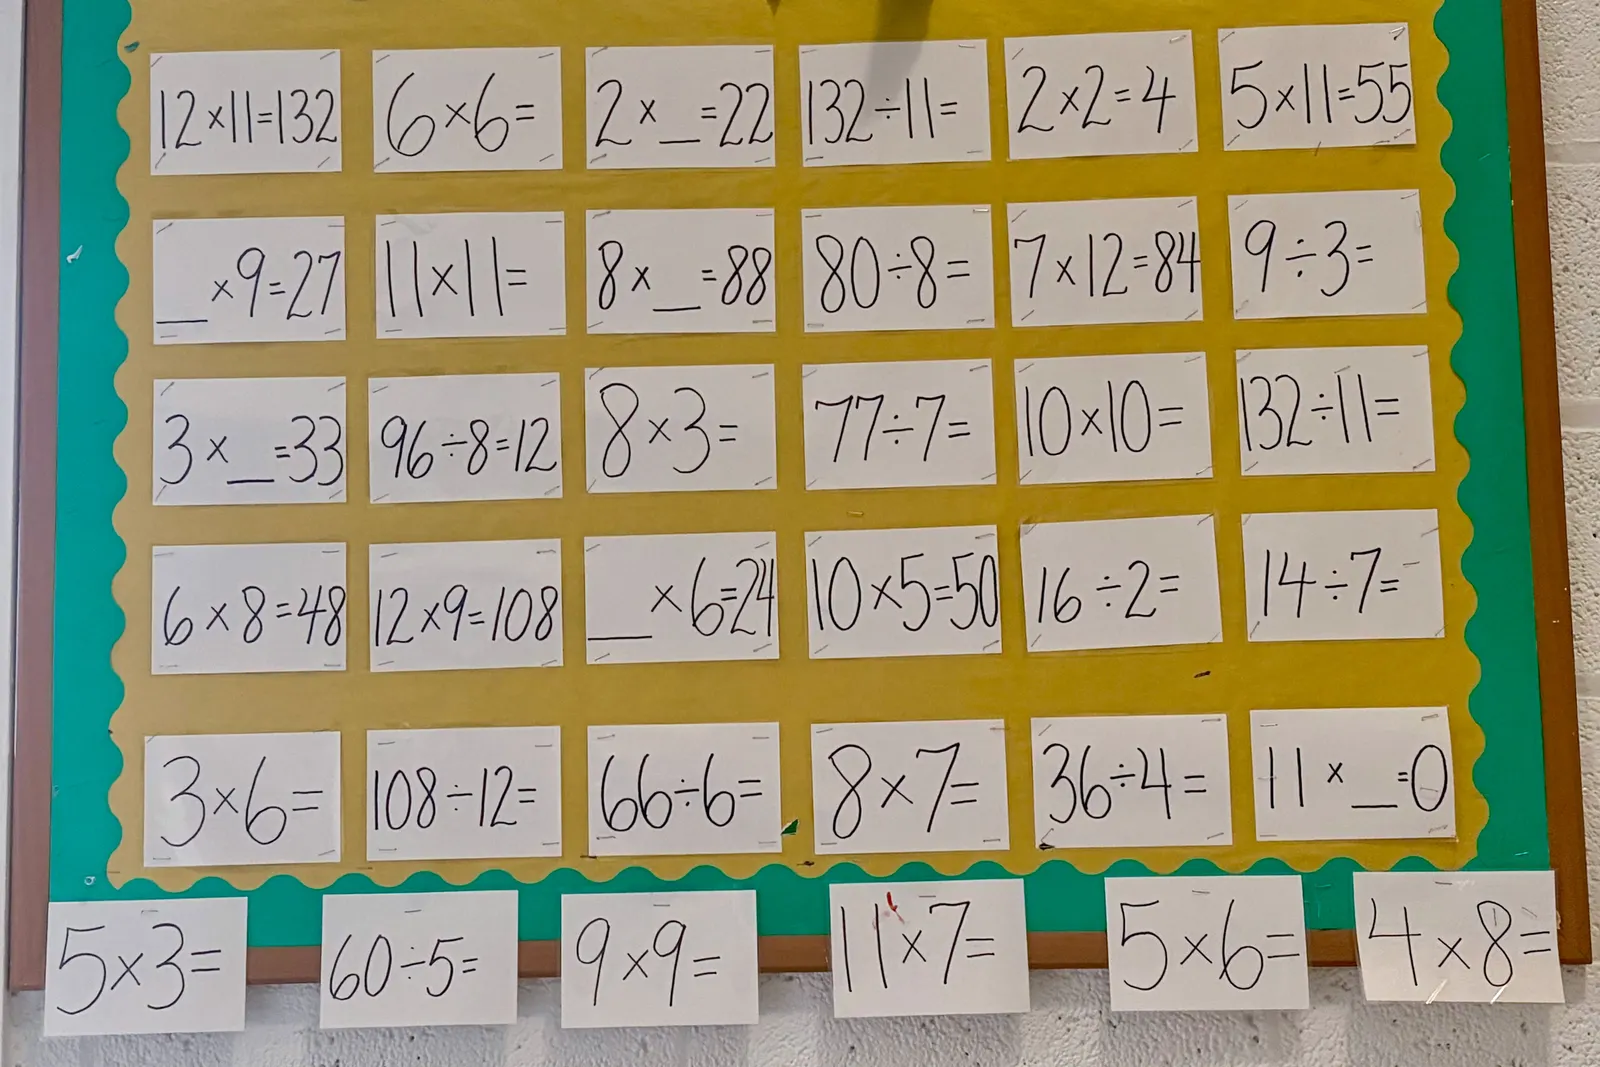 12×11=132
6×6=
2×__=22
132÷11=
2×2=4
5×11=55
__×9=27
11×11=
8×__=88
80÷8=
7×12=84
9÷3=
3×__=33
96÷8=12
8×3=
77÷7=
10×10=
132÷11=
6×8=48
12×9=108
__×6=24
10×5=50
16÷2=
14÷7=
3×6=
108÷12=
66÷6=
8×7=
36÷4=
11×__=0
5×3=
60÷5=
9×9=
11×7=
5×6=
4×8=